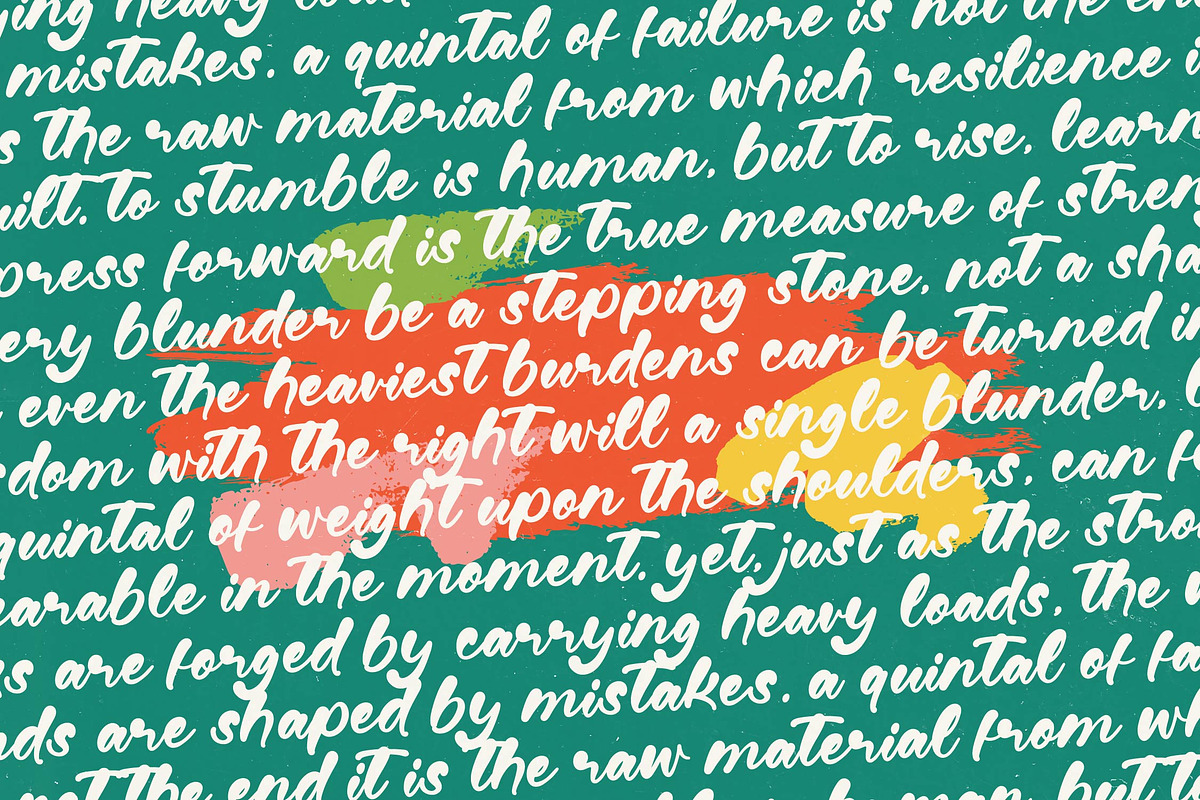 heavy
mistakes. a quintal of failure is not the
the raw material from which resilience
to stumble is human, but to rise, learn
press forward is the true measure of
blunder be a stepping stone, not a
even the heaviest burdens can be turned
with the right will a single blunder,
quintal of weight upon the shoulders, can
in the moment. yet, just as the
are forged by carrying heavy loads, the
are shaped by mistakes. a quintal of
not the end it is the raw material from
but